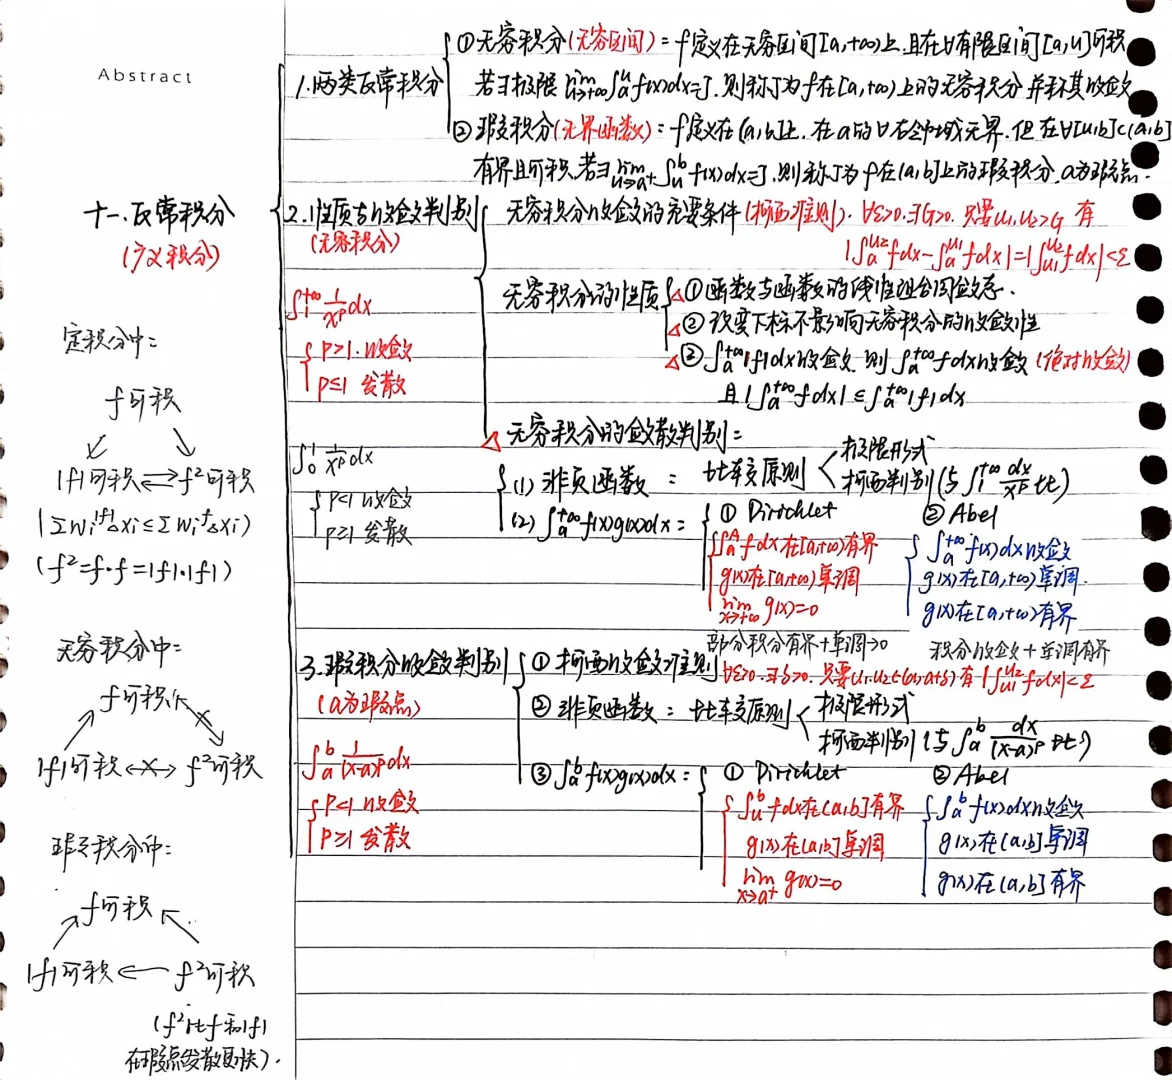 Abstract
十一、反常积分
(广义积分)
定积分中:
f可积
|f|可积 ⇌ f²可积
(Σwᵢ^|f|Δxᵢ ≤ Σwᵢ^fΔxᵢ)
(f²=f·f=|f|·|f|)
无穷积分中:
f可积
|f|可积 f²可积
瑕积分中:
f可积
|f|可积 ← f²可积
(f²比f和|f|
在瑕点发散更快).
1.两类反常积分
①无穷积分(无穷区间)=f定义在无穷区间[a,+∞)上,且在∀有限区间[a,u]可积
若∃极限 lim_{u→+∞}∫_a^u f(x)dx=J,则称J为f在[a,+∞)上的无穷积分并称其收敛
②瑕积分(无界函数)=f定义在(a,b]上,在a的∀右邻域无界,但在∀[u,b]⊂(a,b]
有界且可积,若∃lim_{u→a⁺}∫_u^b f(x)dx=J,则称J为f在(a,b]上的瑕积分,a为瑕点.
2.性质与收敛判别
(无穷积分)
∫_1^{+∞} 1/x^p dx
p>1.收敛
p≤1 发散
∫_0^1 1/x^p dx
p<1 收敛
p≥1 发散
无穷积分收敛的充要条件(柯西准则).∀ε>0,∃G>0,只要u₁,u₂>G 有
|∫_a^{u₂}fdx-∫_a^{u₁}fdx|=|∫_{u₁}^{u₂}fdx|<ε
无穷积分的性质
△①函数与函数的线性组合同敛态.
△②改变下标不影响无穷积分的收敛性
△③∫_a^{+∞}|f|dx收敛,则∫_a^{+∞}fdx收敛(绝对收敛)
且|∫_a^{+∞}fdx|≤∫_a^{+∞}|f|dx
△无穷积分的敛散判别:
(1)非负函数: 比较原则 < 极限形式
柯西判别(与∫_1^{+∞}dx/x^p 比)
(2)∫_a^{+∞}f(x)g(x)dx:
① Dirichlet
∫_a^A fdx在[a,+∞)有界
g(x)在[a,+∞)单调
lim_{x→+∞} g(x)=0
部分积分有界+单调→0
② Abel
∫_a^{+∞}f(x)dx收敛
g(x)在[a,+∞)单调.
g(x)在[a,+∞)有界
积分收敛+单调有界
3.瑕积分收敛判别
(a为瑕点)
∫_a^b 1/(x-a)^p dx
p<1 收敛
p≥1 发散
①柯西收敛准则 ∀ε>0,∃δ>0,只要u₁,u₂∈(a,a+δ)有|∫_{u₁}^{u₂}fdx|<ε
②非负函数: 比较原则 < 极限形式
柯西判别(与∫_a^b dx/(x-a)^p 比)
③∫_a^b f(x)g(x)dx:
① Dirichlet
∫_u^b fdx在(a,b]有界
g(x)在(a,b]单调
lim_{x→a⁺} g(x)=0
② Abel
∫_a^b f(x)dx收敛
g(x)在(a,b]单调
g(x)在(a,b]有界